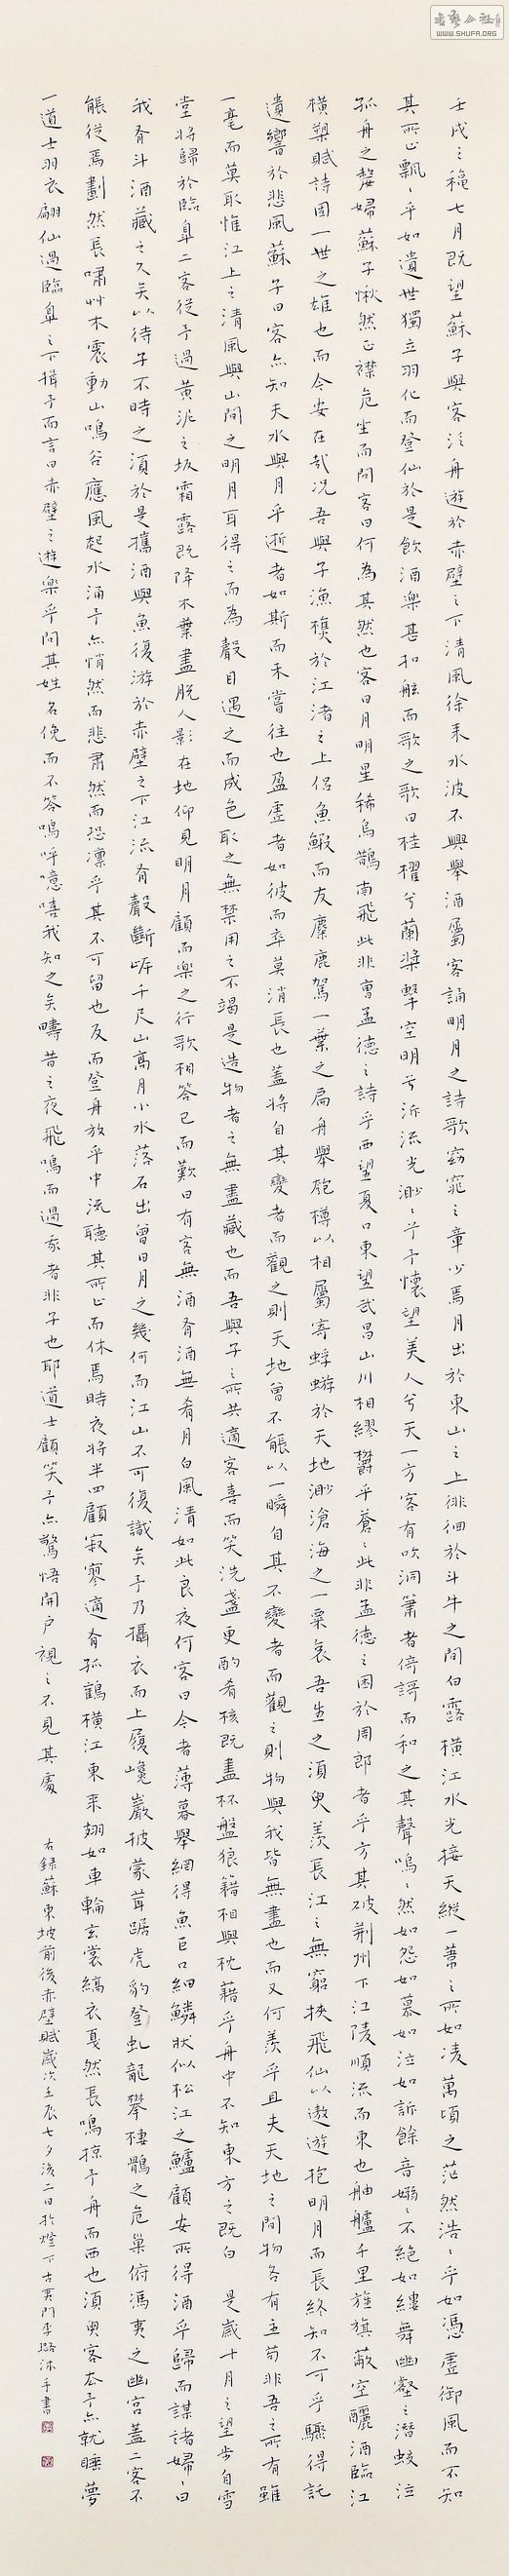 老艺公社
WWW.SHUFA.ORG
壬戌之穐七月既望蘇子與客泛舟遊於赤壁之下清風徐来水波不興舉酒屬客誦明月之詩歌窈窕之章少焉月出於東山之上徘徊於斗牛之間白露橫江水光接天縱一葦之所如凌萬頃之茫然浩〻乎如馮虛御風而不知
其所止飄〻乎如遺世獨立羽化而登仙於是飲酒樂甚扣舷而歌之歌曰桂櫂兮蘭槳擊空明兮泝流光渺〻兮予懷望美人兮天一方客有吹洞簫者倚謌而和之其聲嗚〻然如怨如慕如泣如訴餘音嫋〻不絕如縷舞幽壑之潛蛟泣
孤舟之嫠婦蘇子愀然正襟危坐而問客曰何為其然也客曰月明星稀烏鵲南飛此非曹孟德之詩乎西望夏口東望武昌山川相繆欝乎蒼〻此非孟德之困於周郎者乎方其破荊州下江陵順流而東也舳艫千里旌旗蔽空釃酒臨江
橫槊賦詩固一世之雄也而今安在哉况吾與子漁樵於江渚之上侶魚鰕而友麋鹿駕一葉之扁舟舉匏樽以相屬寄蜉蝣於天地渺滄海之一粟哀吾生之須臾羨長江之無窮挾飛仙以遨遊抱明月而長終知不可乎驟得託
遺響於悲風蘇子曰客亦知夫水與月乎逝者如斯而未嘗往也盈虛者如彼而卒莫消長也蓋將自其變者而觀之則天地曾不能以一瞬自其不變者而觀之則物與我皆無盡也而又何羨乎且夫天地之間物各有主苟非吾之所有雖
一毫而莫取惟江上之清風與山間之明月耳得之而為聲目遇之而成色取之無禁用之不竭是造物者之無盡藏也而吾與子之所共適客喜而笑洗盞更酌肴核既盡杯盤狼籍相與枕藉乎舟中不知東方之既白 是歲十月之望步自雪
堂將歸於臨皐二客從予過黃泥之坂霜露既降木葉盡脫人影在地仰見明月顧而樂之行歌相答已而歎曰有客無酒有酒無肴月白風清如此良夜何客曰今者薄暮舉網得魚巨口細鱗狀似松江之鱸顧安所得酒乎歸而謀諸婦〻曰
我有斗酒藏之久矣以待子不時之須於是攜酒與魚復游於赤壁之下江流有聲斷岸千尺山高月小水落石出曾日月之幾何而江山不可復識矣予乃攝衣而上履巉巖披蒙茸踞虎豹登虬龍攀棲鶻之危巢俯馮夷之幽宮蓋二客不
能從焉劃然長嘯艸木震動山鳴谷應風起水涌予亦悄然而悲肅然而恐凜乎其不可留也反而登舟放乎中流聽其所止而休焉時夜將半四顧寂寥適有孤鶴橫江東来翅如車輪玄裳縞衣戛然長鳴掠予舟而西也須臾客去予亦就睡夢
一道士羽衣翩仙過臨皐之下揖予而言曰赤壁之遊樂乎問其姓名俛而不答嗚呼噫嘻我知之矣疇昔之夜飛鳴而過我者非子也耶道士顧笑予亦驚悟開戶視之不見其處
右録蘇東坡前後赤壁賦歲次壬辰七夕後二日於燈下古冀門李璐沐手書